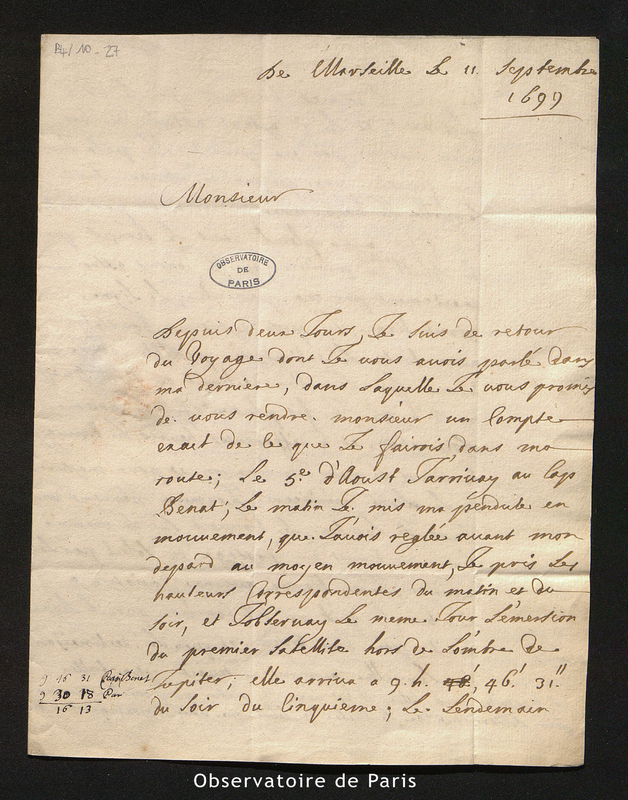 B4/10-27
De Marseille le 11 Septembre
1699
Monsieur
OBSERVATOIRE
DE
PARIS
Depuis deux Jours, Je suis de retour
du Voyage dont Je vous avois parlé dans
ma derniere, dans laquelle Je vous promis
de vous rendre monsieur un Compte
exact de ce que Je fairois dans ma
route; Le 5.e d'Aoust J'arrivay au Cap
Benat; Le matin Je mis ma pendule en
mouvement, que J'avois reglée avant mon
depard au moyen mouvement, Je pris les
hauteurs Correspondentes du matin et du
soir, et J'observay Le meme Jour L'emersion
du premier satellite hors de L'ombre de
Jupiter; elle arriva a 9. h. 46.' 31."
du soir du Cinquieme; Le Lendemain
9 46 31 Cap Benat
9 30 18 Par
16 13
Observatoire de Paris